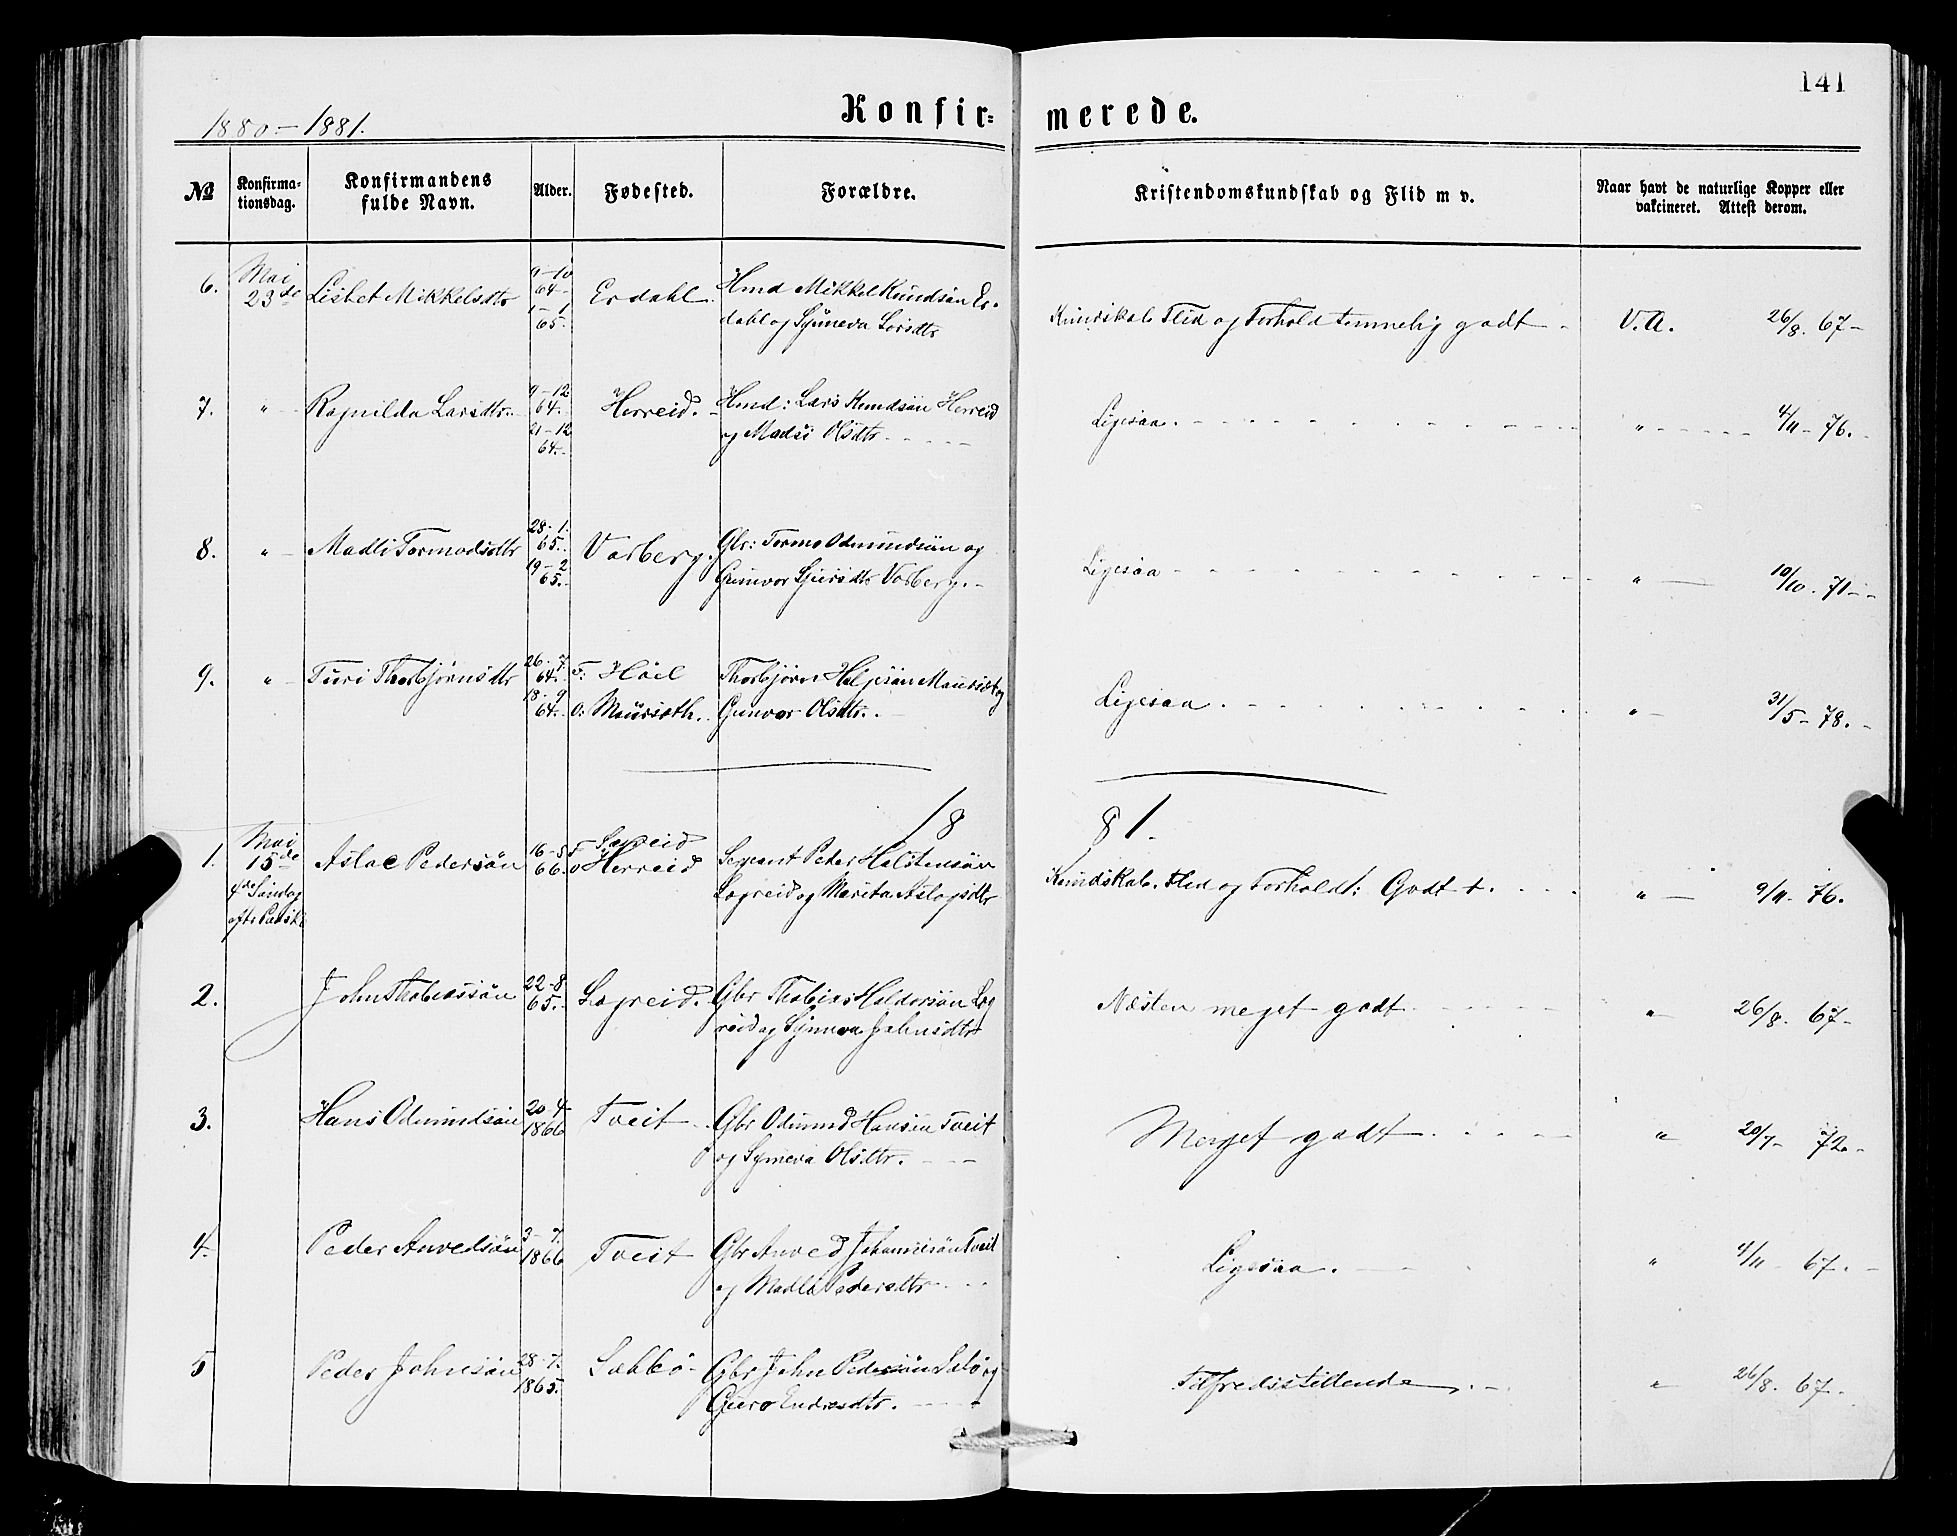 141
1880 – 1881.
Konfir= merede.
№
Konfirma=
tionsdag.
Konfirmandens
fulde Navn.
Alder.
Fødested.
Forældre.
Kristendomskundskab og Flid m v.
Naar havt de naturlige Kopper eller
vakcineret. Attest derom.
6. Mai
23de
Lisbet Mikkelsdtr
64
1–1
65.
Erdahl
Hmd Mikkel Knudsøn Er-
dahl og Synneva Larsdtr
Kundskab Flid og Forhold temmelig godt
V.A. 26/8. 67–
7. " Ragnilda Larsdtr.
9–12
64.
21–12
64.–
Herreid.
Hmd: Lars Knudsøn Herreid
og Madli Olsdtr
Ligesaa.
" 4/11 – 76.
8. " Madli Tormodsdtr
28–1.
65.
19–2
65.–
Varberg.
Gbr: Tormo Odmundsøn og
Gunvor Sjursdtr Varberg.–
Ligesaa
" 10/10. 71–
9. " Turi Thorbjørnsdtr
26–7.
64.
18–9
64.
F: Hæel
O: Maurseth.
Thorbjørn Heljesøn Maurset og
Gunvor Olsdtr.
Ligesaa.
" 31/5 – 78.–
18 81.
1. Mai
15de
4de Søndag
eftr Paaske
Aslac Pedersøn
16–5
66.
F Lagreid
O Herreid
Sergeant Peder Halstensøn
Lagreid og Marita Aslagsdtr
Kundskab. Flid og Forhold: Godt +.
" 9/11– 76.
2. John Thobiassøn
22–8
65.–
Lagreid.
Gbr Thobias Haldorsøn Lag
reid og Synneva Johnsdtr
Næsten meget godt
" 26/8. 67–
3. Hans Odmundsøn
20–4
1866
Tveit
Gbr Odmund Hansøn Tveit
og Synneva Olsdtr.
Meget godt
" 20/7– 72.–
4. Peder Anvedsøn
3–7.
1866
Tveit
Gbr Anved Johannesøn Tveit
og Madli Pedersdtr
Ligesaa.
" 4/11 – 67.
5 Peder Johnsøn
28–7.
1865.
Sæbbø–
Gbr John Pedersøn Sæbø og
Guro Endresdtr.
Tilfredsstillende.–
" 26/8. 67.